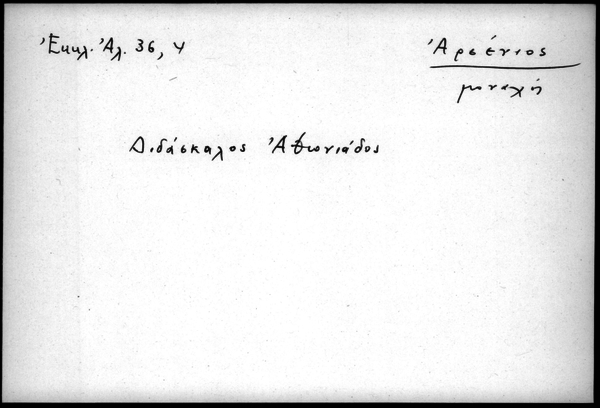 Ἐκκλ. Ἀλ. 36, 4
Ἀρσένιος
μοναχὸ
Διδάσκαλος Ἀθωνιάδος